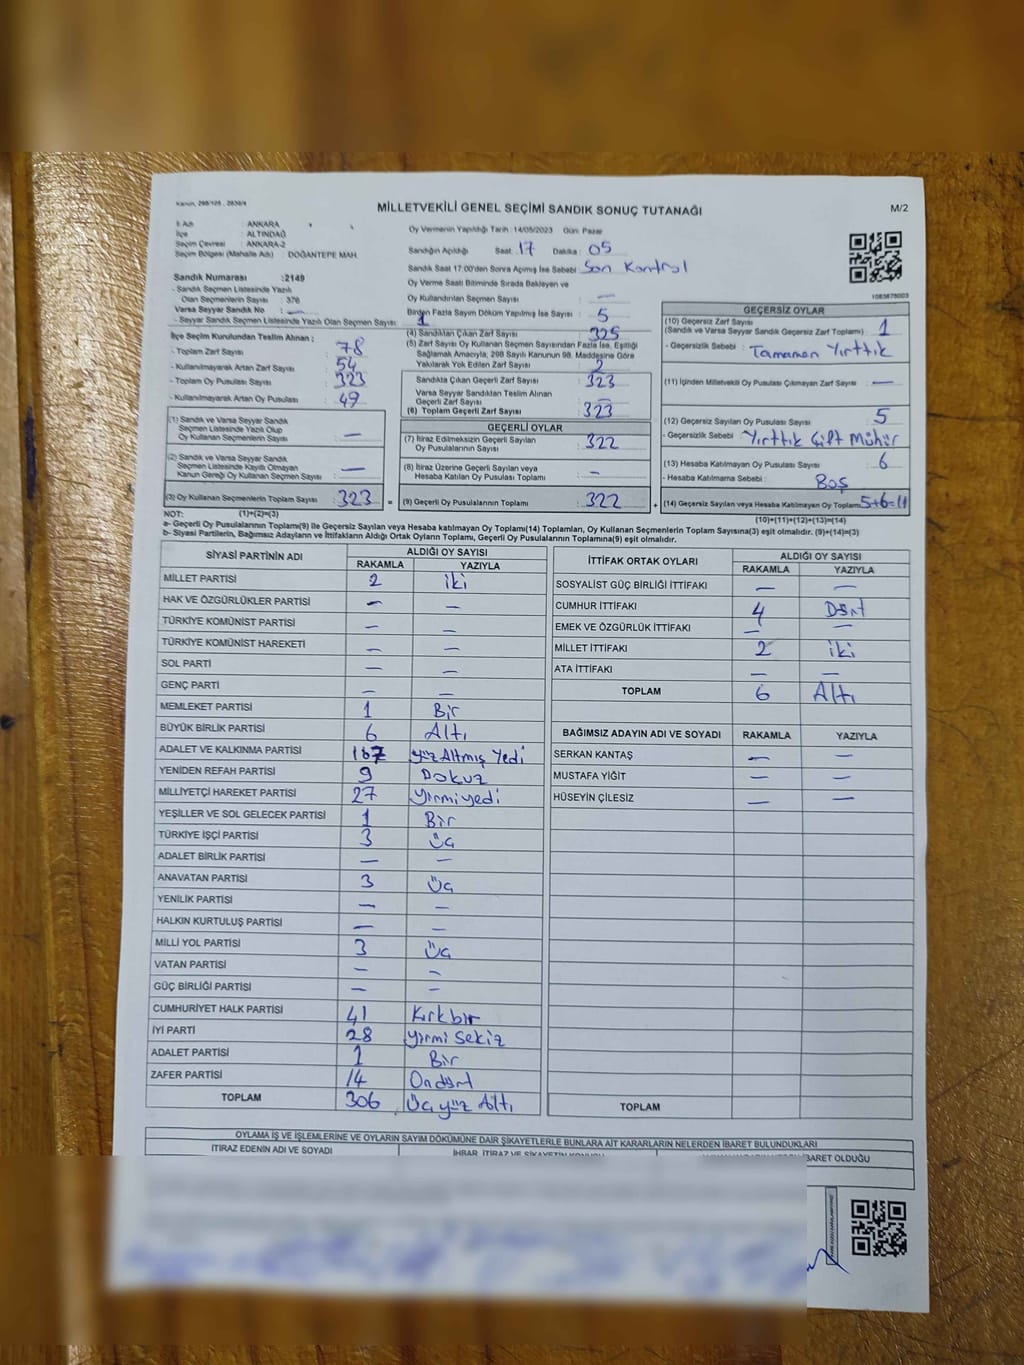 Kanun, 298/105 , 2839/4
MİLLETVEKİLİ GENEL SEÇİMİ SANDIK SONUÇ TUTANAĞI
M/2
İl Adı : ANKARA
İlçe : ALTINDAĞ
Seçim Çevresi : ANKARA-2
Seçim Bölgesi (Mahalle Adı) : DOĞANTEPE MAH.
Oy Vermenin Yapıldığı Tarih : 14/05/2023 Gün: Pazar
Sandığın Açıldığı Saat : 17 Dakika : 05
Sandık Saat 17:00'den Sonra Açılmış İse Sebebi : Son Kontrol
Oy Verme Saati Bitiminde Sırada Bekleyen ve
Oy Kullandırılan Seçmen Sayısı : —
Birden Fazla Sayım Döküm Yapılmış İse Sayısı : 5
Sandık Numarası :2149
- Sandık Seçmen Listesinde Yazılı
Olan Seçmenlerin Sayısı : 376
Varsa Seyyar Sandık No : —
- Seyyar Sandık Seçmen Listesinde Yazılı Olan Seçmen Sayısı : 1
İlçe Seçim Kurulundan Teslim Alınan ;
- Toplam Zarf Sayısı : 78
- Kullanılmayarak Artan Zarf Sayısı : 54
- Toplam Oy Pusulası Sayısı : 323
- Kullanılmayarak Artan Oy Pusulası : 49
(1) Sandık ve Varsa Seyyar Sandık
Seçmen Listesinde Yazılı Olup
Oy Kullanan Seçmenlerin Sayısı : —
(2) Sandık ve Varsa Seyyar Sandık
Seçmen Listesinde Kayıtlı Olmayan
Kanun Gereği Oy Kullanan Seçmen Sayısı : —
(3) Oy Kullanan Seçmenlerin Toplam Sayısı : 323 =
(4) Sandıktan Çıkan Zarf Sayısı : 325
(5) Zarf Sayısı Oy Kullanan Seçmen Sayısından Fazla İse, Eşitliği
Sağlamak Amacıyla, 298 Sayılı Kanunun 98. Maddesine Göre
Yakılarak Yok Edilen Zarf Sayısı : 2
Sandıkta Çıkan Geçerli Zarf Sayısı : 323
Varsa Seyyar Sandıktan Teslim Alınan
Geçerli Zarf Sayısı : —
(6) Toplam Geçerli Zarf Sayısı : 323
GEÇERLİ OYLAR
(7) İtiraz Edilmeksizin Geçerli Sayılan
Oy Pusulalarının Sayısı : 322
(8) İtiraz Üzerine Geçerli Sayılan veya
Hesaba Katılan Oy Pusulası Toplamı : —
(9) Geçerli Oy Pusulalarının Toplamı : 322 +
1083878003
GEÇERSİZ OYLAR
(10) Geçersiz Zarf Sayısı
(Sandık ve Varsa Seyyar Sandık Geçersiz Zarf Toplamı) : 1
- Geçersizlik Sebebi : Tamamen Yırttık
(11) İçinden Milletvekili Oy Pusulası Çıkmayan Zarf Sayısı : —
(12) Geçersiz Sayılan Oy Pusulası Sayısı : 5
- Geçersizlik Sebebi : Yırttık Çift Mühür
(13) Hesaba Katılmayan Oy Pusulası Sayısı : 6
- Hesaba Katılmama Sebebi : Boş
(14) Geçersiz Sayılan veya Hesaba Katılmayan Oy Toplamı: 5+6=11
NOT: (1)+(2)=(3) (10)+(11)+(12)+(13)=(14)
a- Geçerli Oy Pusulalarının Toplamı(9) ile Geçersiz Sayılan veya Hesaba katılmayan Oy Toplamı(14) Toplamları, Oy Kullanan Seçmenlerin Toplam Sayısına(3) eşit olmalıdır. (9)+(14)=(3)
b- Siyasi Partilerin, Bağımsız Adayların ve İttifakların Aldığı Ortak Oyların Toplamı, Geçerli Oy Pusulalarının Toplamına(9) eşit olmalıdır.
SİYASİ PARTİNİN ADI ALDIĞI OY SAYISI
RAKAMLA YAZIYLA
MİLLET PARTİSİ 2 iki
HAK VE ÖZGÜRLÜKLER PARTİSİ — —
TÜRKİYE KOMÜNİST PARTİSİ — —
TÜRKİYE KOMÜNİST HAREKETİ — —
SOL PARTİ — —
GENÇ PARTİ — —
MEMLEKET PARTİSİ 1 Bir
BÜYÜK BİRLİK PARTİSİ 6 Altı
ADALET VE KALKINMA PARTİSİ 167 yüz Altmış Yedi
YENİDEN REFAH PARTİSİ 9 Dokuz
MİLLİYETÇİ HAREKET PARTİSİ 27 yirmiyedi
YEŞİLLER VE SOL GELECEK PARTİSİ 1 Bir
TÜRKİYE İŞÇİ PARTİSİ 3 Üç
ADALET BİRLİK PARTİSİ — —
ANAVATAN PARTİSİ 3 Üç
YENİLİK PARTİSİ — —
HALKIN KURTULUŞ PARTİSİ — —
MİLLİ YOL PARTİSİ 3 Üç
VATAN PARTİSİ — —
GÜÇ BİRLİĞİ PARTİSİ — —
CUMHURİYET HALK PARTİSİ 41 Kırkbir
İYİ PARTİ 28 yirmi sekiz
ADALET PARTİSİ 1 Bir
ZAFER PARTİSİ 14 Ondört
TOPLAM 306 Üç yüz Altı
İTTİFAK ORTAK OYLARI ALDIĞI OY SAYISI
RAKAMLA YAZIYLA
SOSYALİST GÜÇ BİRLİĞİ İTTİFAKI — —
CUMHUR İTTİFAKI 4 Dört
EMEK VE ÖZGÜRLÜK İTTİFAKI — —
MİLLET İTTİFAKI 2 iki
ATA İTTİFAKI — —
TOPLAM 6 Altı
BAĞIMSIZ ADAYIN ADI VE SOYADI RAKAMLA YAZIYLA
SERKAN KANTAŞ — —
MUSTAFA YİĞİT — —
HÜSEYİN ÇİLESİZ — —
TOPLAM
OYLAMA İŞ VE İŞLEMLERİNE VE OYLARIN SAYIM DÖKÜMÜNE DAİR ŞİKAYETLERLE BUNLARA AİT KARARLARIN NELERDEN İBARET BULUNDUKLARI
İTİRAZ EDENİN ADI VE SOYADI İHBAR, İTİRAZ VE ŞİKAYETİN KONUSU İBARET OLDUĞU